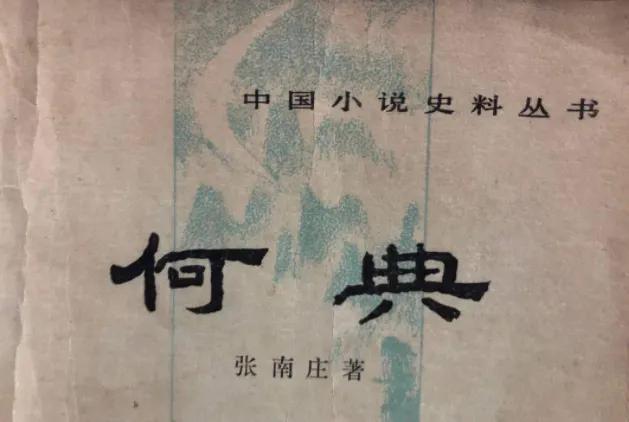 中国小说史料丛书
何典
张南庄著